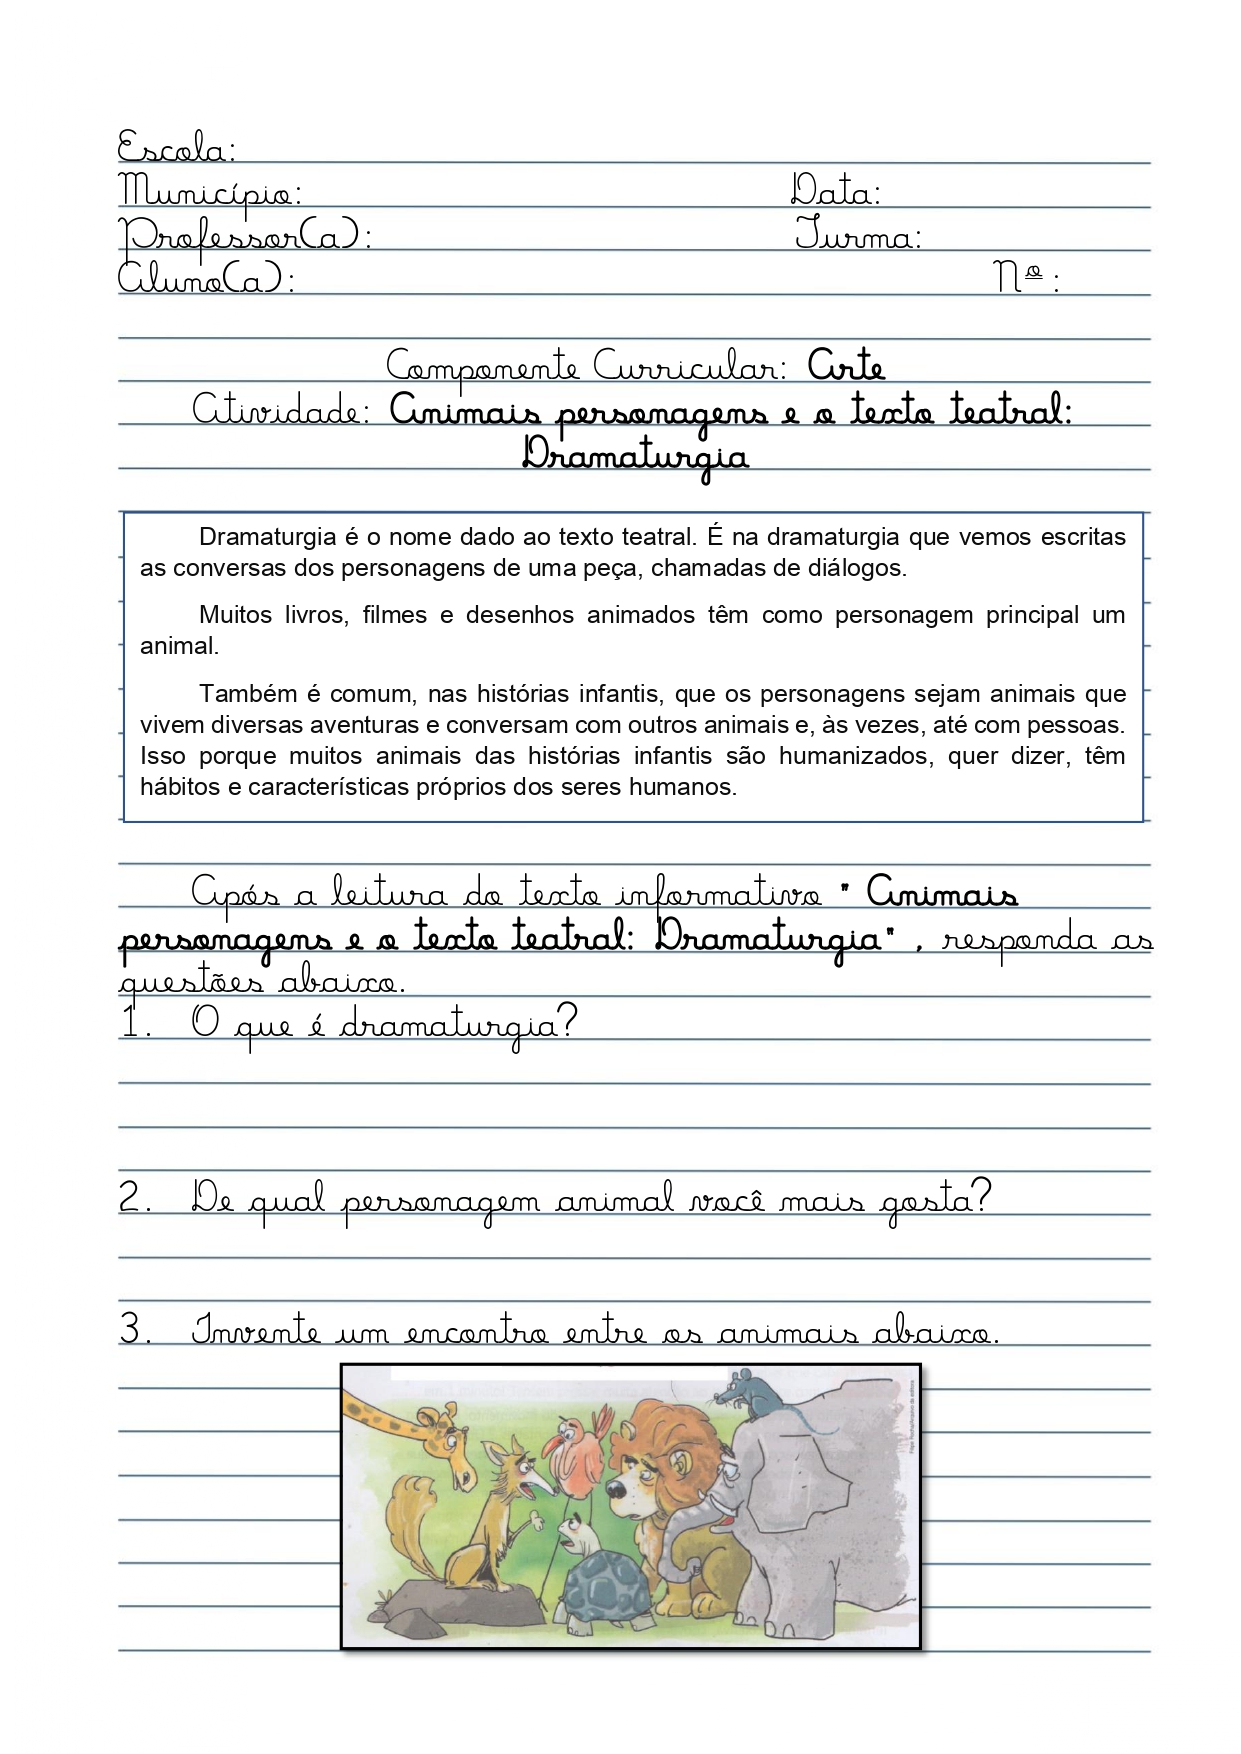 Escola:
Município: Data:
Professor(a): Turma:
Aluno(a): Nº:
Componente Curricular: Arte
Atividade: Animais personagens e o texto teatral:
Dramaturgia
Dramaturgia é o nome dado ao texto teatral. É na dramaturgia que vemos escritas
as conversas dos personagens de uma peça, chamadas de diálogos.
Muitos livros, filmes e desenhos animados têm como personagem principal um
animal.
Também é comum, nas histórias infantis, que os personagens sejam animais que
vivem diversas aventuras e conversam com outros animais e, às vezes, até com pessoas.
Isso porque muitos animais das histórias infantis são humanizados, quer dizer, têm
hábitos e características próprios dos seres humanos.
Após a leitura do texto informativo " Animais
personagens e o texto teatral: Dramaturgia" , responda as
questões abaixo.
1. O que é dramaturgia?
2. De qual personagem animal você mais gosta?
3. Invente um encontro entre os animais abaixo.